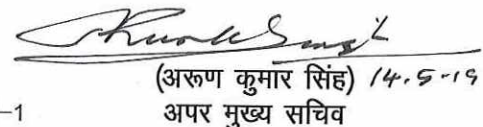 (अरूण कुमार सिंह) 14.5.19
–1
अपर मुख्य सचिव